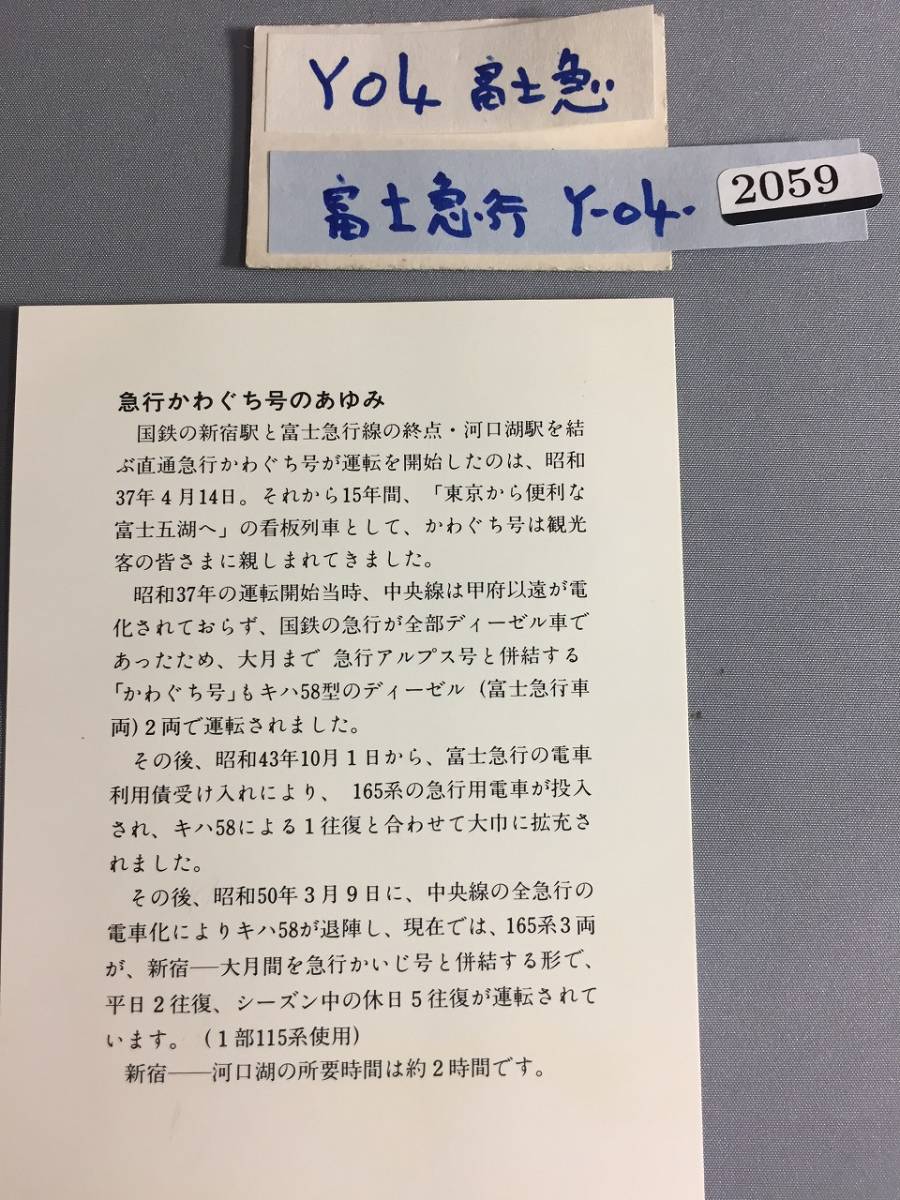 Y04 富士急
富士急行 Y-04.
2059
急行かわぐち号のあゆみ
国鉄の新宿駅と富士急行線の終点・河口湖駅を結
ぶ直通急行かわぐち号が運転を開始したのは、昭和
37年4月14日。それから15年間、「東京から便利な
富士五湖へ」の看板列車として、かわぐち号は観光
客の皆さまに親しまれてきました。
昭和37年の運転開始当時、中央線は甲府以遠が電
化されておらず、国鉄の急行が全部ディーゼル車で
あったため、大月まで 急行アルプス号と併結する
「かわぐち号」もキハ58型のディーゼル (富士急行車
両)2両で運転されました。
その後、昭和43年10月1日から、富士急行の電車
利用債受け入れにより、 165系の急行用電車が投入
され、キハ58による1往復と合わせて大巾に拡充さ
れました。
その後、昭和50年3月9日に、中央線の全急行の
電車化によりキハ58が退陣し、現在では、165系3両
が、新宿―大月間を急行かいじ号と併結する形で、
平日2往復、シーズン中の休日5往復が運転されて
います。 (1部115系使用)
新宿――河口湖の所要時間は約2時間です。